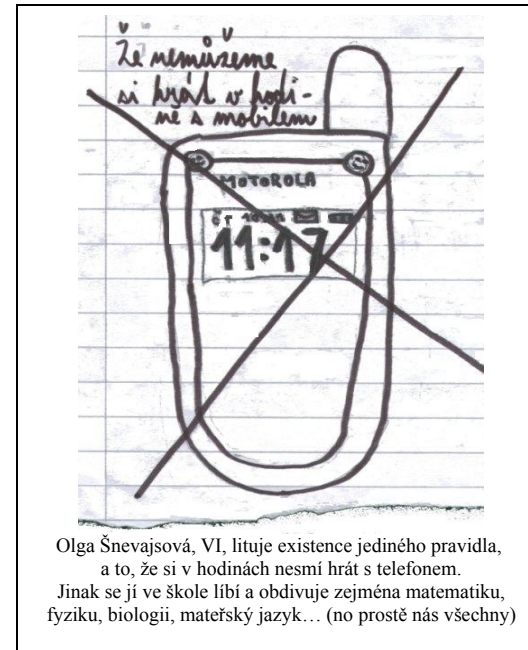 Že nemůžeme
si hrát v hodi-
ne s mobilem
MOTOROLA
11:17
Olga Šnevajsová, VI, lituje existence jediného pravidla,
a to, že si v hodinách nesmí hrát s telefonem.
Jinak se jí ve škole líbí a obdivuje zejména matematiku,
fyziku, biologii, mateřský jazyk… (no prostě nás všechny)